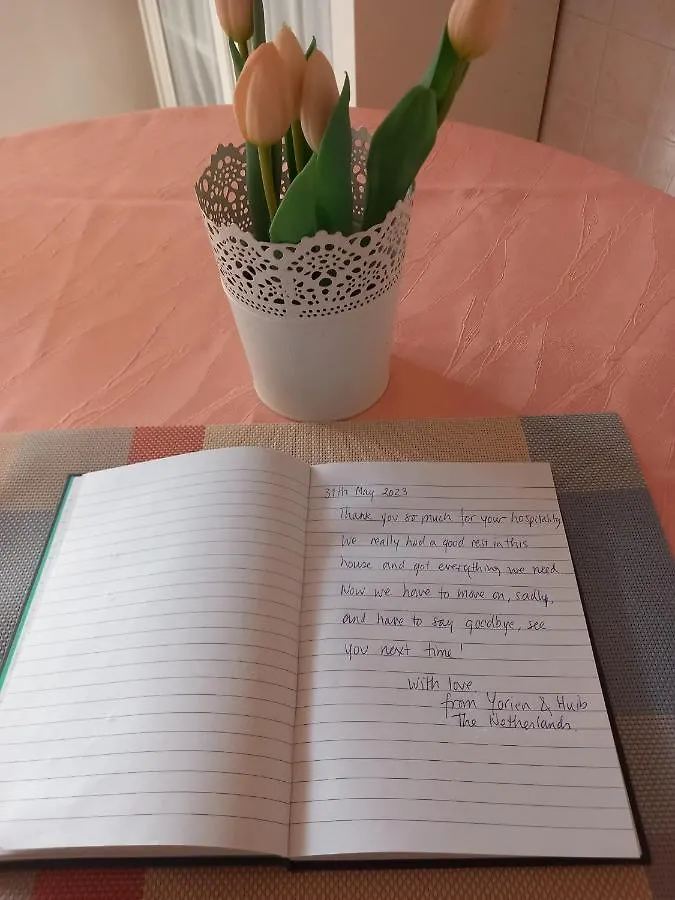 31th May 2023
Thank you so much for your hospitality
We really had a good rest in this
house and got everything we need
Now we have to move on, sadly,
and have to say goodbye, see
you next time!
With love
from Yorien & Huib
The Netherlands.